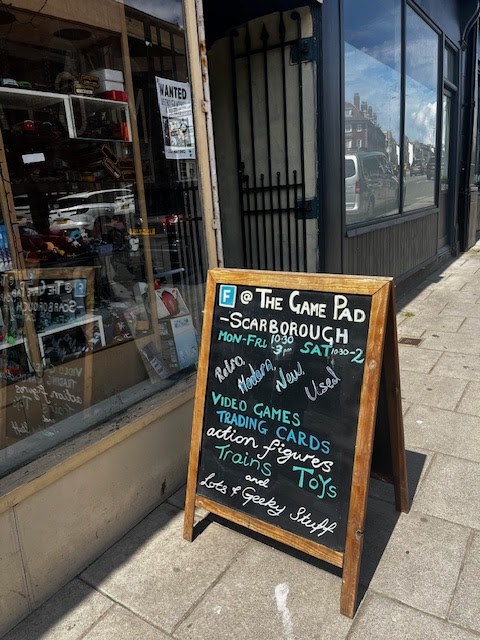 WANTED
F @ THE GAME PAD
-SCARBOROUGH
MON-FRI 10·30-3pm SAT 10·30-2
Retro, Modern, New, Used!
VIDEO GAMES
TRADING CARDS
action figures
Trains Toys
and
Lots of Geeky Stuff